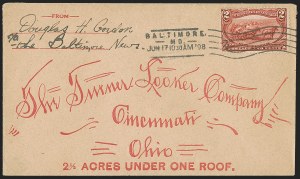 FROM
Douglas H. Gordon
c/o The Baltimore News.
BALTIMORE,
MD.
JUN 17 10 AM '98
The Turner Looker Company
Cincinnati
Ohio
2¼ ACRES UNDER ONE ROOF.